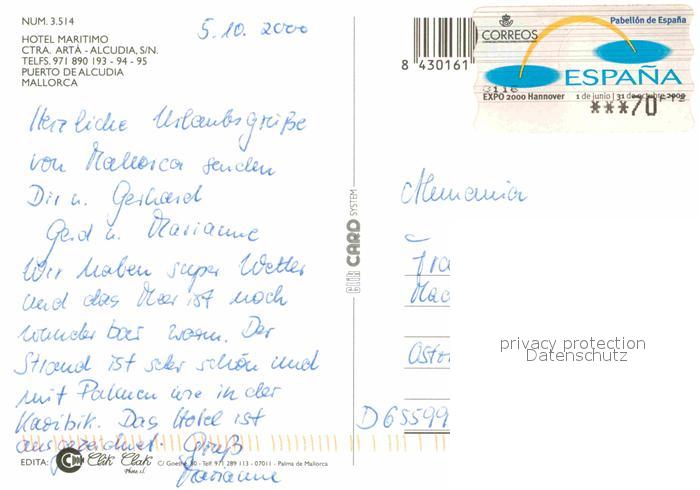 NUM. 3.514
HOTEL MARITIMO
CTRA. ARTÀ - ALCUDIA, S/N.
TELFS. 971 890 193 - 94 - 95
PUERTO DE ALCUDIA
MALLORCA
5.10. 2000
Herzliche Urlaubsgrüße
von Mallorca senden
Dir u. Gerhard
Gerd u. Marianne
Wir haben super Wetter
und das Meer ist noch
wunderbar warm. Der
Strand ist sehr schön und
mit Palmen wie in der
Karibik. Das Hotel ist
ausgezeichnet. Gruß
Marianne
EDITA: Clik Clak
Photo s.l.
C/ Goethe, 30 - Telf. 971 289 113 - 07011 - Palma de Mallorca
CliK CARD SYSTEM
8 430161
CORREOS
Pabellón de España
ESPAÑA
3116
EXPO 2000 Hannover 1 de junio | 31 de octubre 2000
***70 PTS
Alemania
Fra
Mac
privacy protection
Datenschutz
Oston
D 65599